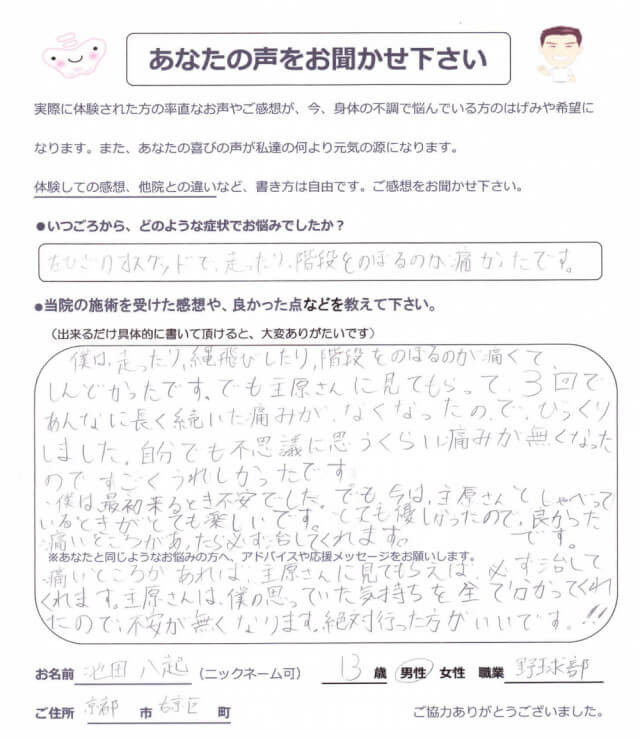 あなたの声をお聞かせ下さい
実際に体験された方の率直なお声やご感想が、今、身体の不調で悩んでいる方のはげみや希望に
なります。また、あなたの喜びの声が私達の何より元気の源になります。
体験しての感想、他院との違いなど、書き方は自由です。ご感想をお聞かせ下さい。
●いつごろから、どのような症状でお悩みでしたか？
左ひざのオスグッドで、走ったり、階段をのぼるのが痛かったです。
●当院の施術を受けた感想や、良かった点などを教えて下さい。
（出来るだけ具体的に書いて頂けると、大変ありがたいです）
僕は、走ったり,縄飛びしたり,階段をのぼるのが痛くて、
しんどかったです。でも主原さんに見てもらって、3回で
あんなに長く続いた痛みが、なくなったので、びっくり
しました。自分でも不思議に思うくらいに痛みが無くなった
のですごくうれしかったです
僕は最初来るとき不安でした。でも、今は、主原さんとしゃべって
いるときがとても楽しいです。とても優しかったので、良かった
痛いところがあったら必ず治してくれます。です。
※あなたと同じようなお悩みの方へ、アドバイスや応援メッセージをお願いします。
痛いところがあれば、主原さんに見てもらえば、必ず治して
くれます。主原さんは、僕の思っていた気持ちを全て分かってくれ
たので、不安が無くなります。絶対行った方がいいです。!!
お名前 池田 八起 （ニックネーム可） 13 歳 男性 女性 職業 野球部
ご住所 京都 市 右京区 町 ご協力ありがとうございました。